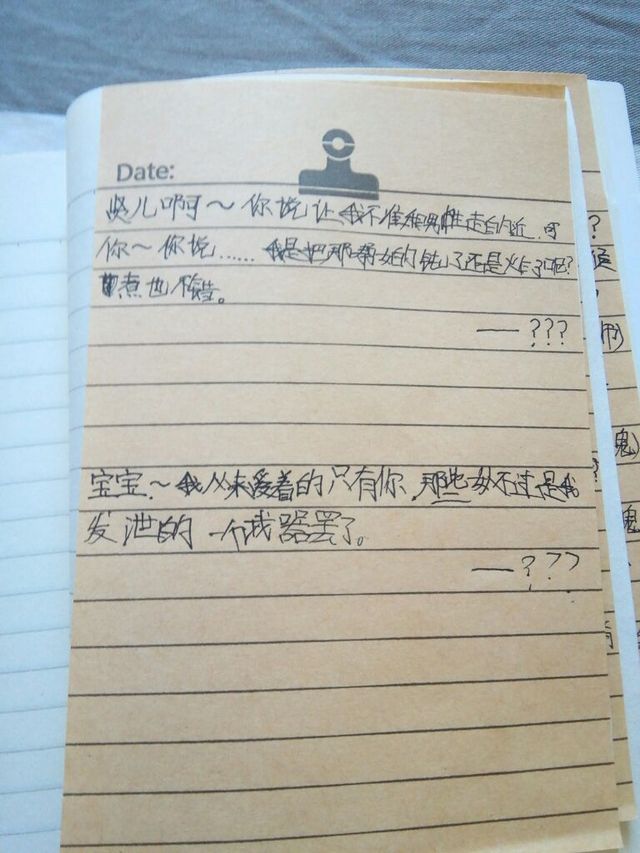 Date:
儿啊～你说让我不准和男性走的近，可
你～你说……我是把那帮奴的饨了还是火乍了呢？
煮也不错。
—???
宝宝～我从未爱着的只有你，那些奴不过是我
发泄的一个戎器罢了。
—???
？
鬼)
鬼